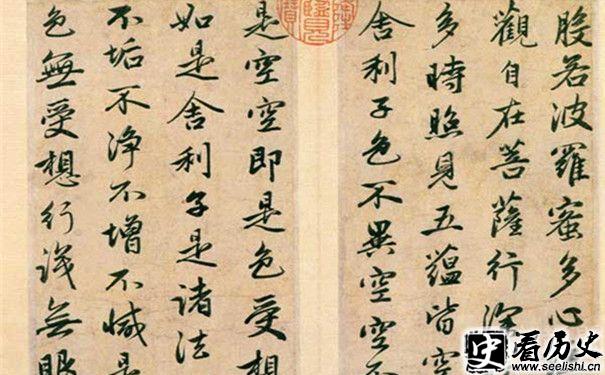 般若波羅蜜多心
觀自在菩薩行深
多時照見五蘊皆空
舍利子色不異空空不
是空空即是色受想
如是舍利子是諸法
不垢不净不增不減是
色無受想行識無眼
史 看历史
www.seelishi.cn